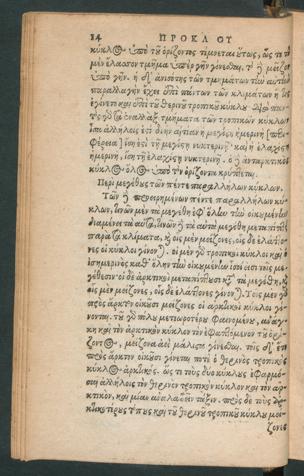 14 ΠΡΟΚΛΟΥ
κύκλος ὑπὸ τοῦ ὁρίζοντος τέμνεται οὕτως, ὥς τε τὸ
μὲν ἔλασσον τμῆμα ὑπὲρ γῆν γίνεσθαι, τὸ δὲ μεῖζον
ὑπὸ γῆν. ἡ δ' ἀνισότης τῶν τμημάτων τὴν αὐτὴν
παραλλαγὴν ἔχει ἐπὶ πάντων τῶν κλιμάτων ἣ
ἐγίνετο καὶ ἐπὶ τοῦ θερινοῦ τροπικοῦ κύκλου.
τμήματα τῶν τροπικῶν κύκλων
ἴσα ἀλλήλοις ἐστὶ δι' ἣν αἰτίαν ἡ μεγίστη ἡμερινὴ
ἴση ἐστὶ τῇ μεγίστῃ νυκτερινῇ· καὶ ἡ ἐλαχίστη
ἡμερινὴ, ἴση τῇ ἐλαχίστῃ νυκτερινῇ. ὁ δ' ἀνταρκτικὸς
κύκλος ὅλος ὑπὸ τὸν ὁρίζοντα κρύπτεται.
Περὶ μεγέθους τῶν πέντε παραλλήλων κύκλων.
Τῶν δὲ προειρημένων πέντε παραλλήλων κύ-
κλων, ἐνίων μὲν τὰ μεγέθη ἐφ' ὅλην τὴν οἰκουμένην
διαμένει τὰ αὐτὰ, ἐνίων δὲ τὰ μεγέθη μεταπίπτει
παρὰ τὰ κλίματα, καὶ οἷς μὲν μείζονες, οἷς δὲ ἐλάττο-
νες οἱ κύκλοι γίνονται. οἱ μὲν γὰρ τροπικοὶ κύκλοι καὶ ὁ
ἰσημερινὸς καθ' ὅλην τὴν οἰκουμένην ἴσοι εἰσὶ τοῖς με-
γέθεσιν· οἱ δὲ ἀρκτικοὶ μεταπίπτουσι τὰ μεγέθη, καὶ
οἷς μὲν μείζονες, οἷς δὲ ἐλάττονες γίνονται. Τοῖς μὲν γὰρ
πρὸς ἄρκτον οἰκοῦσι μείζονες οἱ ἀρκτικοὶ κύκλοι γί-
νονται. τοῦ γὰρ πόλου μετεωροτέρου φαινομένου, ἀνάγ-
κη καὶ τὸν ἀρκτικὸν κύκλον τὸν ἐφαπτόμενον τοῦ ὁρί-
ζοντος, μείζονα ἀεὶ μᾶλλον γίνεσθαι. τοῖς δ' ἔτι
πρὸς ἄρκτον οἰκοῦσι γίνεταί ποτε ὁ θερινὸς τροπικὸς
κύκλος ἀρκτικός. ὥς τε τοὺς δύο κύκλους ἐφαρμό-
σαι ἀλλήλοις τὸν θερινὸν τροπικὸν κύκλον καὶ τὸν ἀρ-
κτικὸν, καὶ μίαν ἀναλαβεῖν τάξιν. πρὸς δὲ τοὺς
τόπους καὶ τοῦ θερινοῦ τροπικοῦ κύκλου μεί-
ζονες